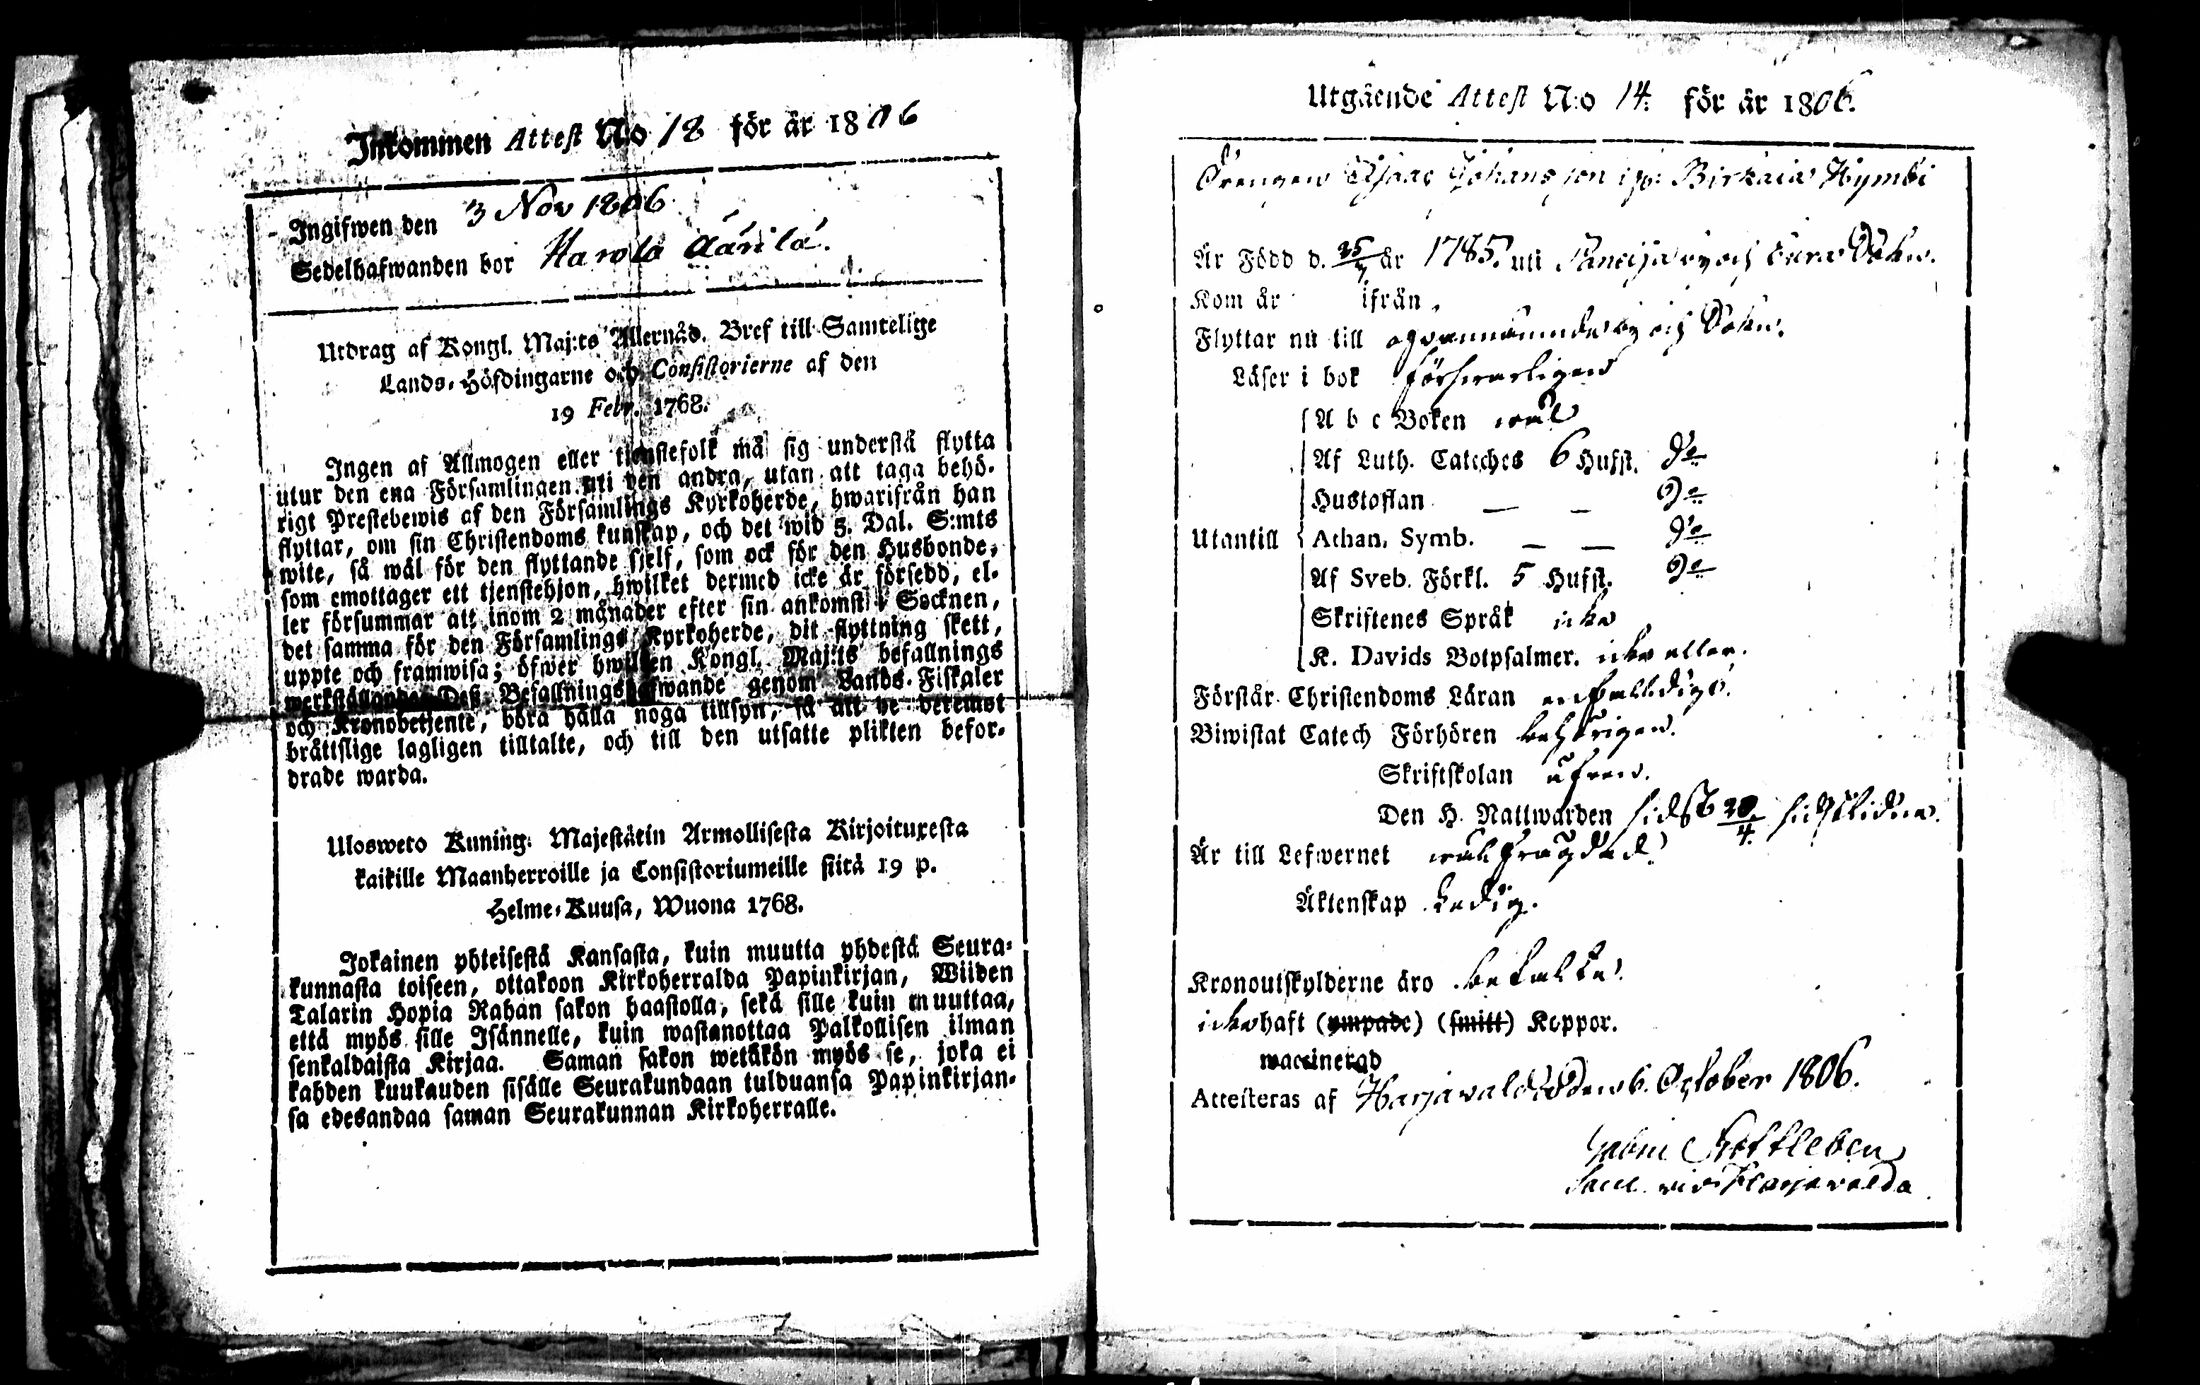 Inkommen Attest No 18 för år 1806
Ingifwen den 3 Nov 1806
Sedelhafwanden bor Harola Aärilä.
Utdrag af Kongl. Maj:ts Allernåd. Bref till Samtelige
Lands-Höfdingarne och Consistorierne af den
19 Febr. 1768.
Ingen af Allmogen eller tienstefolk må sig understå flytta
utur den ena Församlingen uti den andra, utan att taga behö-
rigt Prestebewis af den Församlings Kyrkoherde, hwarifrån han
flyttar, om sin Christendoms kunskap, och det wid 5. Dal. S:mts
wite, så wäl för den flyttande sjelf, som ock för den Husbonde,
som emottager ett tjenstehjon, hwilket dermed icke är försedd, el-
ler försummar att inom 2 månader efter sin ankomst i Socknen,
det samma för den Församlings Kyrkoherde, dit flyttning skett,
uppte och framwisa; öfwer hwilken Kongl. Maj:ts befallnings
werkställande Deß Befallningshafwande genom Lands-Fiskaler
och Kronobetjente, böra hålla noga tillsyn, så att de deremot
bråttslige lagligen tilltalte, och till den utsatte plikten befor-
drade warda.
Ulosweto Kuning: Majestätin Armollisesta Kirjoituxesta
kaikille Maanherroille ja Consistoriumeille siitä 19 p.
Helme-Kuusa, Wuona 1768.
Jokainen yhteisestä Kansasta, kuin muutta yhdestä Seura-
kunnasta toiseen, ottakoon Kirkoherralda Papinkirjan, Wiiden
Talarin Hopia Rahan sakon haastolla, sekä sille kuin muuttaa,
että myös sille Isännelle, kuin wastanottaa Palkollisen ilman
senkaldaista Kirjaa. Saman sakon wetäkön myös se, joka ei
kahden kuukauden sisälle Seurakundaan tulduansa Papinkirjan-
sa edesandaa saman Seurakunnan Kirkoherralle.
Utgående Attest N:o 14. för år 1806.
Drengen Isaac Johansson ifr: Birkala Hymbi
Är Född d. 25 år 1785. uti by och Sokn.
Kom år ifrån
Flyttar nu till ofvannämnde by och Sokn.
Läser i bok försvarligen
A b c Boken wäl
Af Luth. Cateches 6 Hufst. do
Hustaflan — — do
Utantill Athan. Symb. — — do
Af Sveb. Förkl. 5 Hufst. do
Skriftenes Språk icke
K. Davids Botpsalmer. icke eller.
Förstår Christendoms Läran enfaldigt.
Biwistat Catech Förhören behörigen.
Skriftskolan äfven.
Den H. Nattwarden sidst 20/4 sidstliden.
Är till Lefwernet wäl frägdad.
Äktenskap Ledig.
Kronoutskylderne äro betalte.
icke haft (ympade) (smitt) Koppor.
waccinerad
Attesteras af Harjavalda d. 6. October 1806.
Gabriel Gottleben
Sacel. vid Harjavalda